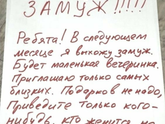 ЗАМУЖ!!!!!
Ребята! В следующем
месяце я выхожу замуж.
Будет маленькая вечеринка.
Приглашаю только самых
близких. Подарков не надо,
Приведите только кого-
нибудь, кто женится на